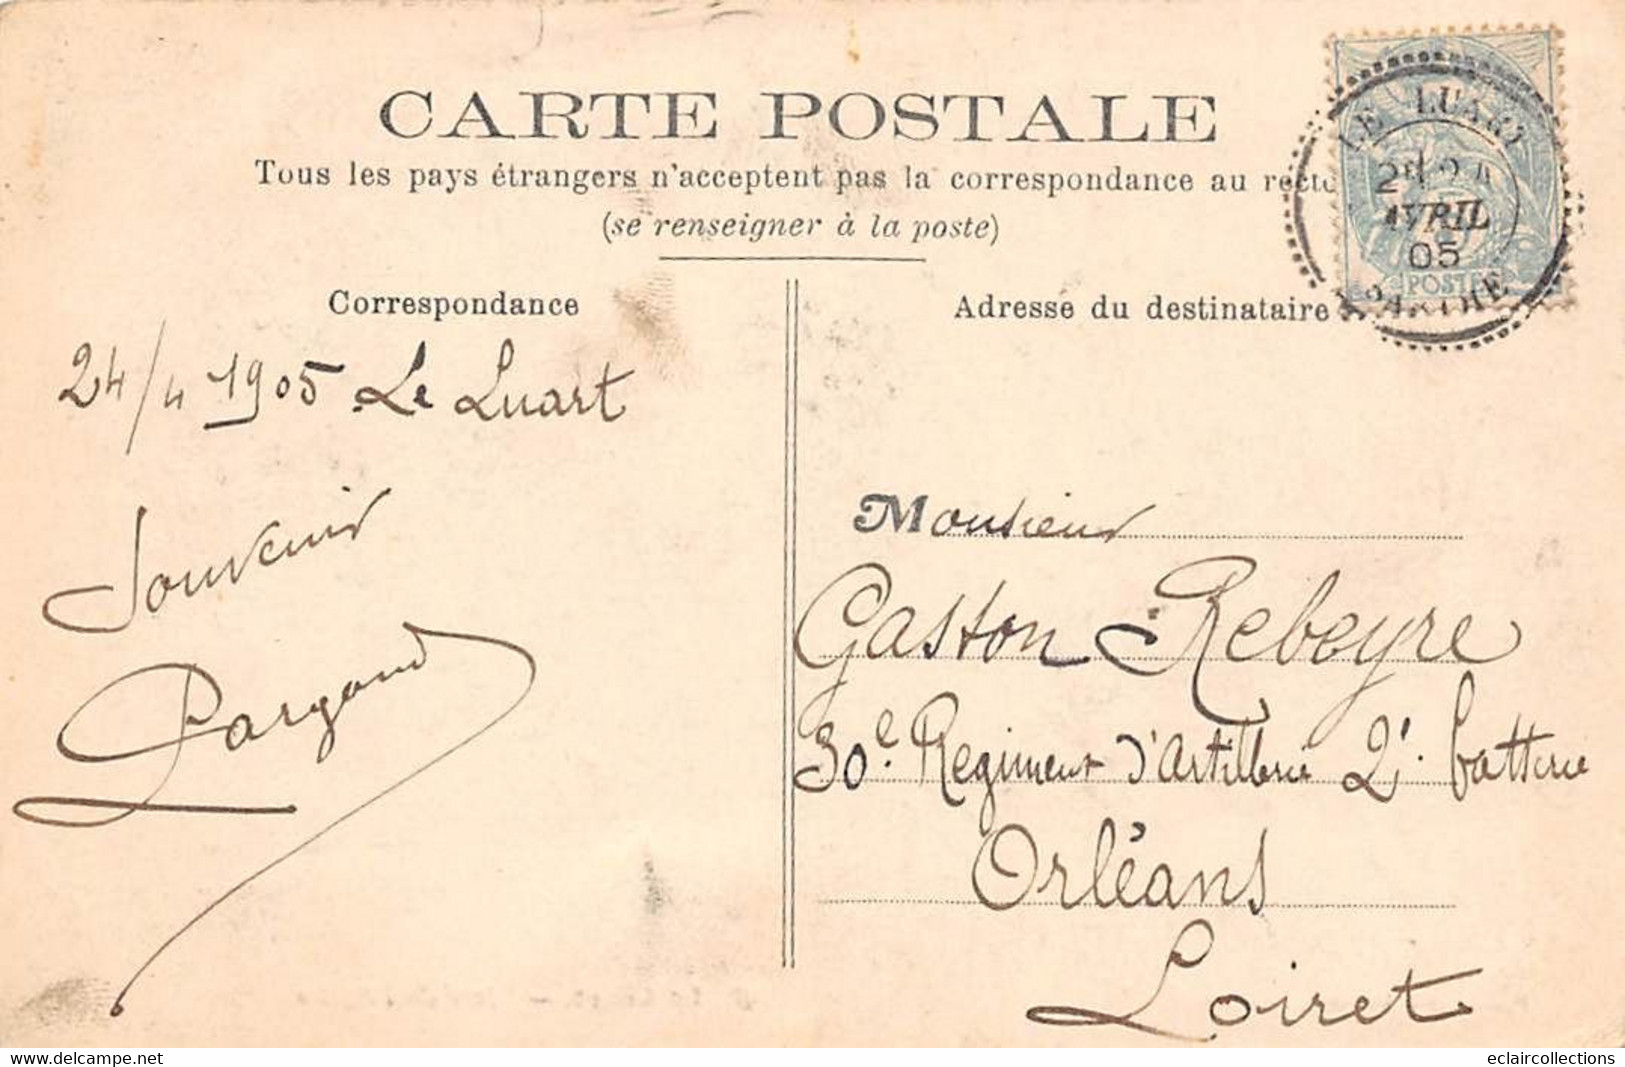 CARTE POSTALE
Tous les pays étrangers n'acceptent pas la correspondance au recto
(se renseigner à la poste)
LE LUART
24
AVRIL
05
POSTES
SARTHE
Correspondance
Adresse du destinataire
24/4 1905 Le Luart
Souvenir
Pargond
Monsieur
Gaston Rebeyre
30e. Régiment d'Artillerie 2e. batterie
Orléans
Loiret
www.eclaircollections.net
eclaircollections